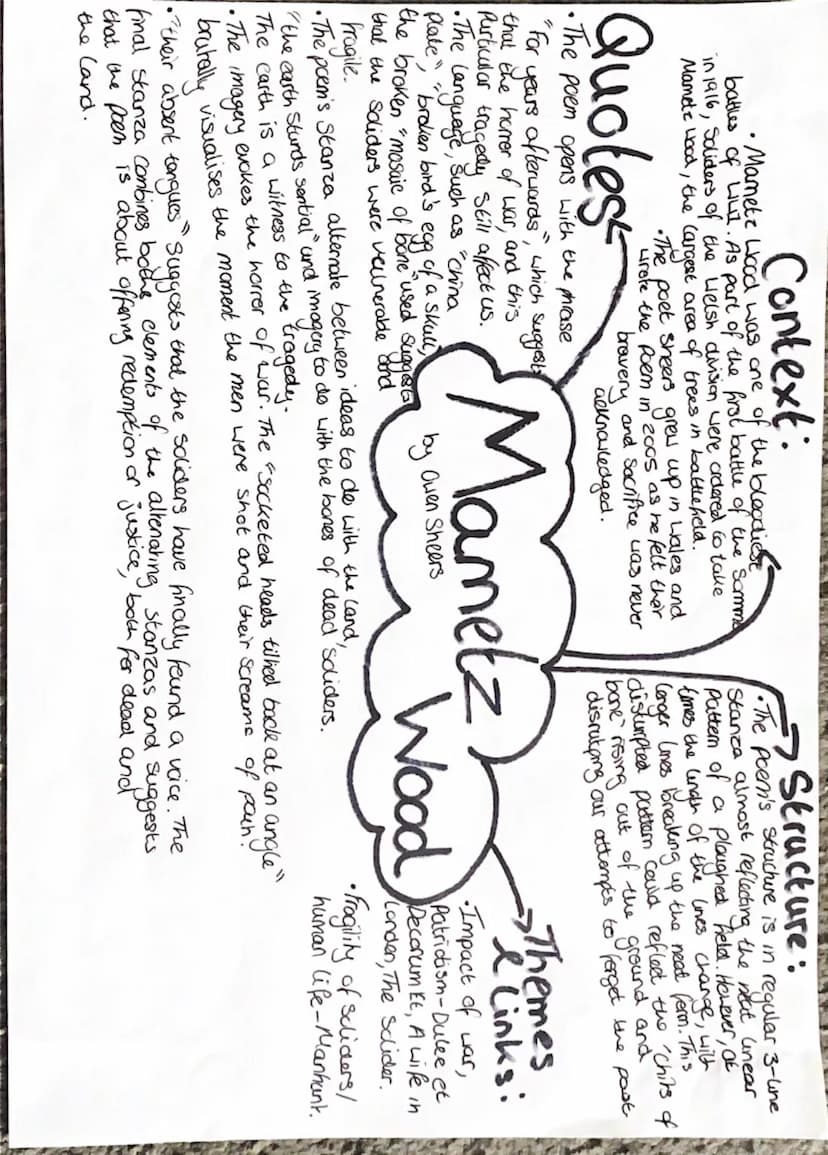 Context:
• Mametz Wood was one of the bloodiest
battles of WW1. As part of the first battle of the Somme
in 1916, Soliders of the Welsh division were ordered to take
Mametz Wood, the largest area of trees in battlefield.
• The poet Sheers grew up in Wales and
wrote the Poem in 2005 as he felt their
bravery and sacrifice was never
acknowledged.
→ Structure:
• The poem's structure is in regular 3-line
Stanza almost reflecting the neat linear
pattern of a ploughed field. However, at
times the length of the lines change, with
longer lines breaking up the neat form. This
disrupted pattern could reflect the 'chits of
bone' rising out of the ground and
disrutping our attempts to forget the past
Quotes
• The poem opens with the phrase
"For years afterwards", which suggest
that the horror of war, and this
Particular tragedy still affect us.
• The language, such as "china
plate", "broken bird's egg of a skull,
the broken "mosaic of bone" used suggests
that the soliders were vulnerable and
fragile.
• The poem's Stanza alternate between ideas to do with the land,
"the earth stands sential" and imagery to do with the bones of dead soliders.
The earth is a witness to the tragedy.
• The imagery evokes the horror of war. The "socketed heads tilted back at an angle"
brutally visualises the moment the men were shot and their screams of pain!
• "their absent tongues" suggests that the soliders have finally found a voice. The
final stanza combines boths elements of the alternating stanzas and suggests
that the poem is about offering redemption or justice, both for dead and
the land.
Mametz Wood
by Owen Sheers
→ Themes
& Links:
• Impact of war,
Patriotism - Dulce et
Decorum Et, A Wife in
London, The Solider.
• Fragility of Soliders/
human life - Manhunt.